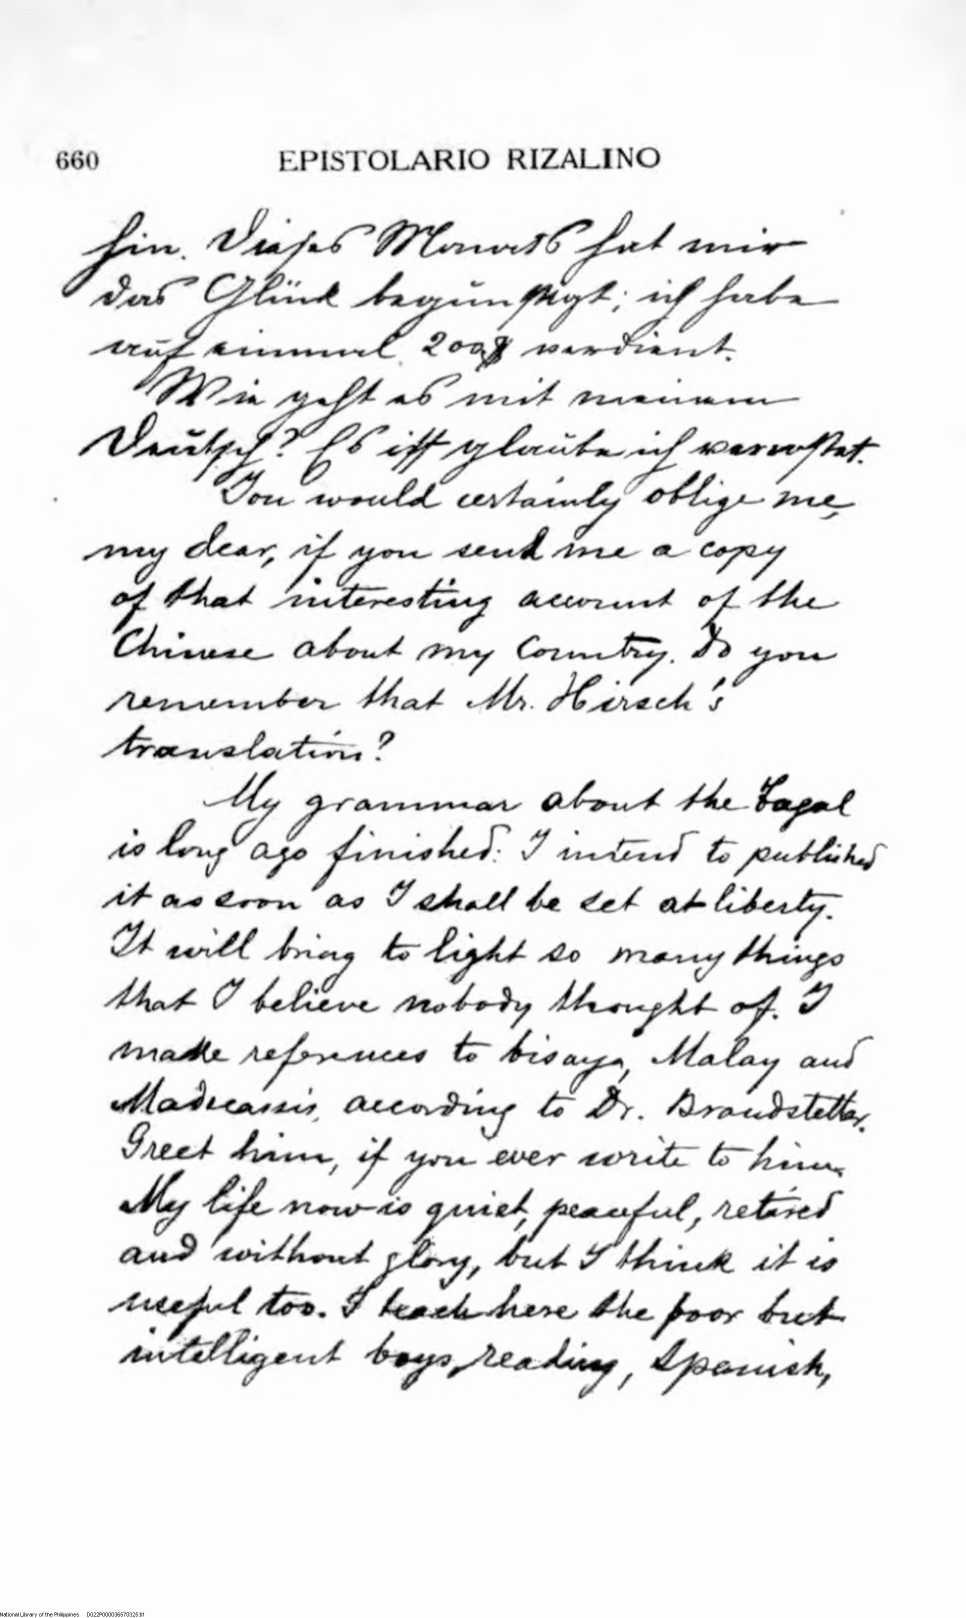 660 EPISTOLARIO RIZALINO
hin. Dieses Monats hat mir
das Glück begünstigt; ich habe
auf einmal 200$ verdient.
Wie geht es mit meinem
Deutsch? Es ist glaube ich verrostet.
You would certainly oblige me,
my dear, if you send me a copy
of that interesting account of the
Chinese about my Country. Do you
remember that Mr. Hirsch's
translation?
My grammar about the Tagal
is long ago finished: I intend to published
it as soon as I shall be set at liberty.
It will bring to light so many things
that I believe nobody thought of. I
make references to bisaya, Malay and
Madecassis, according to Dr. Brandstetter.
Greet him, if you ever write to him.
My life now is quiet, peaceful, retired
and without glory, but I think it is
useful too. I teach here the poor but
intelligent boys reading, Spanish,
National Library of the Philippines